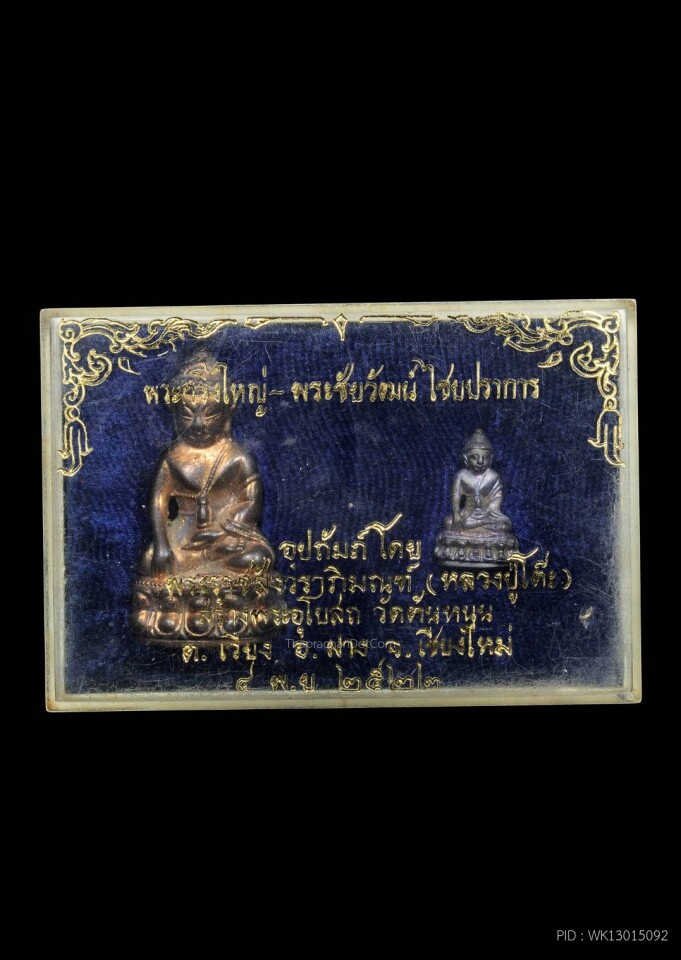 พระกริ่งใหญ่ ~ พระชัยวัฒน์ ไชยปราการ
อุปถัมภ์ โดย
พระราชสังวราภิมณฑ์ (หลวงปู่โต๊ะ)
สร้างพระอุโบสถ วัดต้นหนุน
ต. เวียง อ. ฝาง จ. เชียงใหม่
ThaprachanDotCom
๔ พ.ย ๒๕๒๒
PID : WK13015092